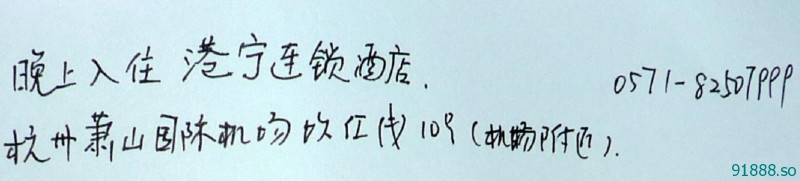 晚上入住 港宁连锁酒店. 0571-82507999
杭州萧山国际机场坎红线109(机场附近).
91888.so